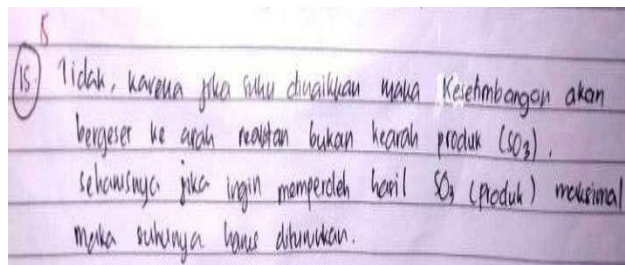 5
15 Tidak, karena jika suhu dinaikkan maka Kesetimbangan akan
bergeser ke arah reaktan bukan kearah produk (SO3).
seharusnya jika ingin memperoleh hasil SO3 (produk) maksimal
maka suhunya harus diturunkan.